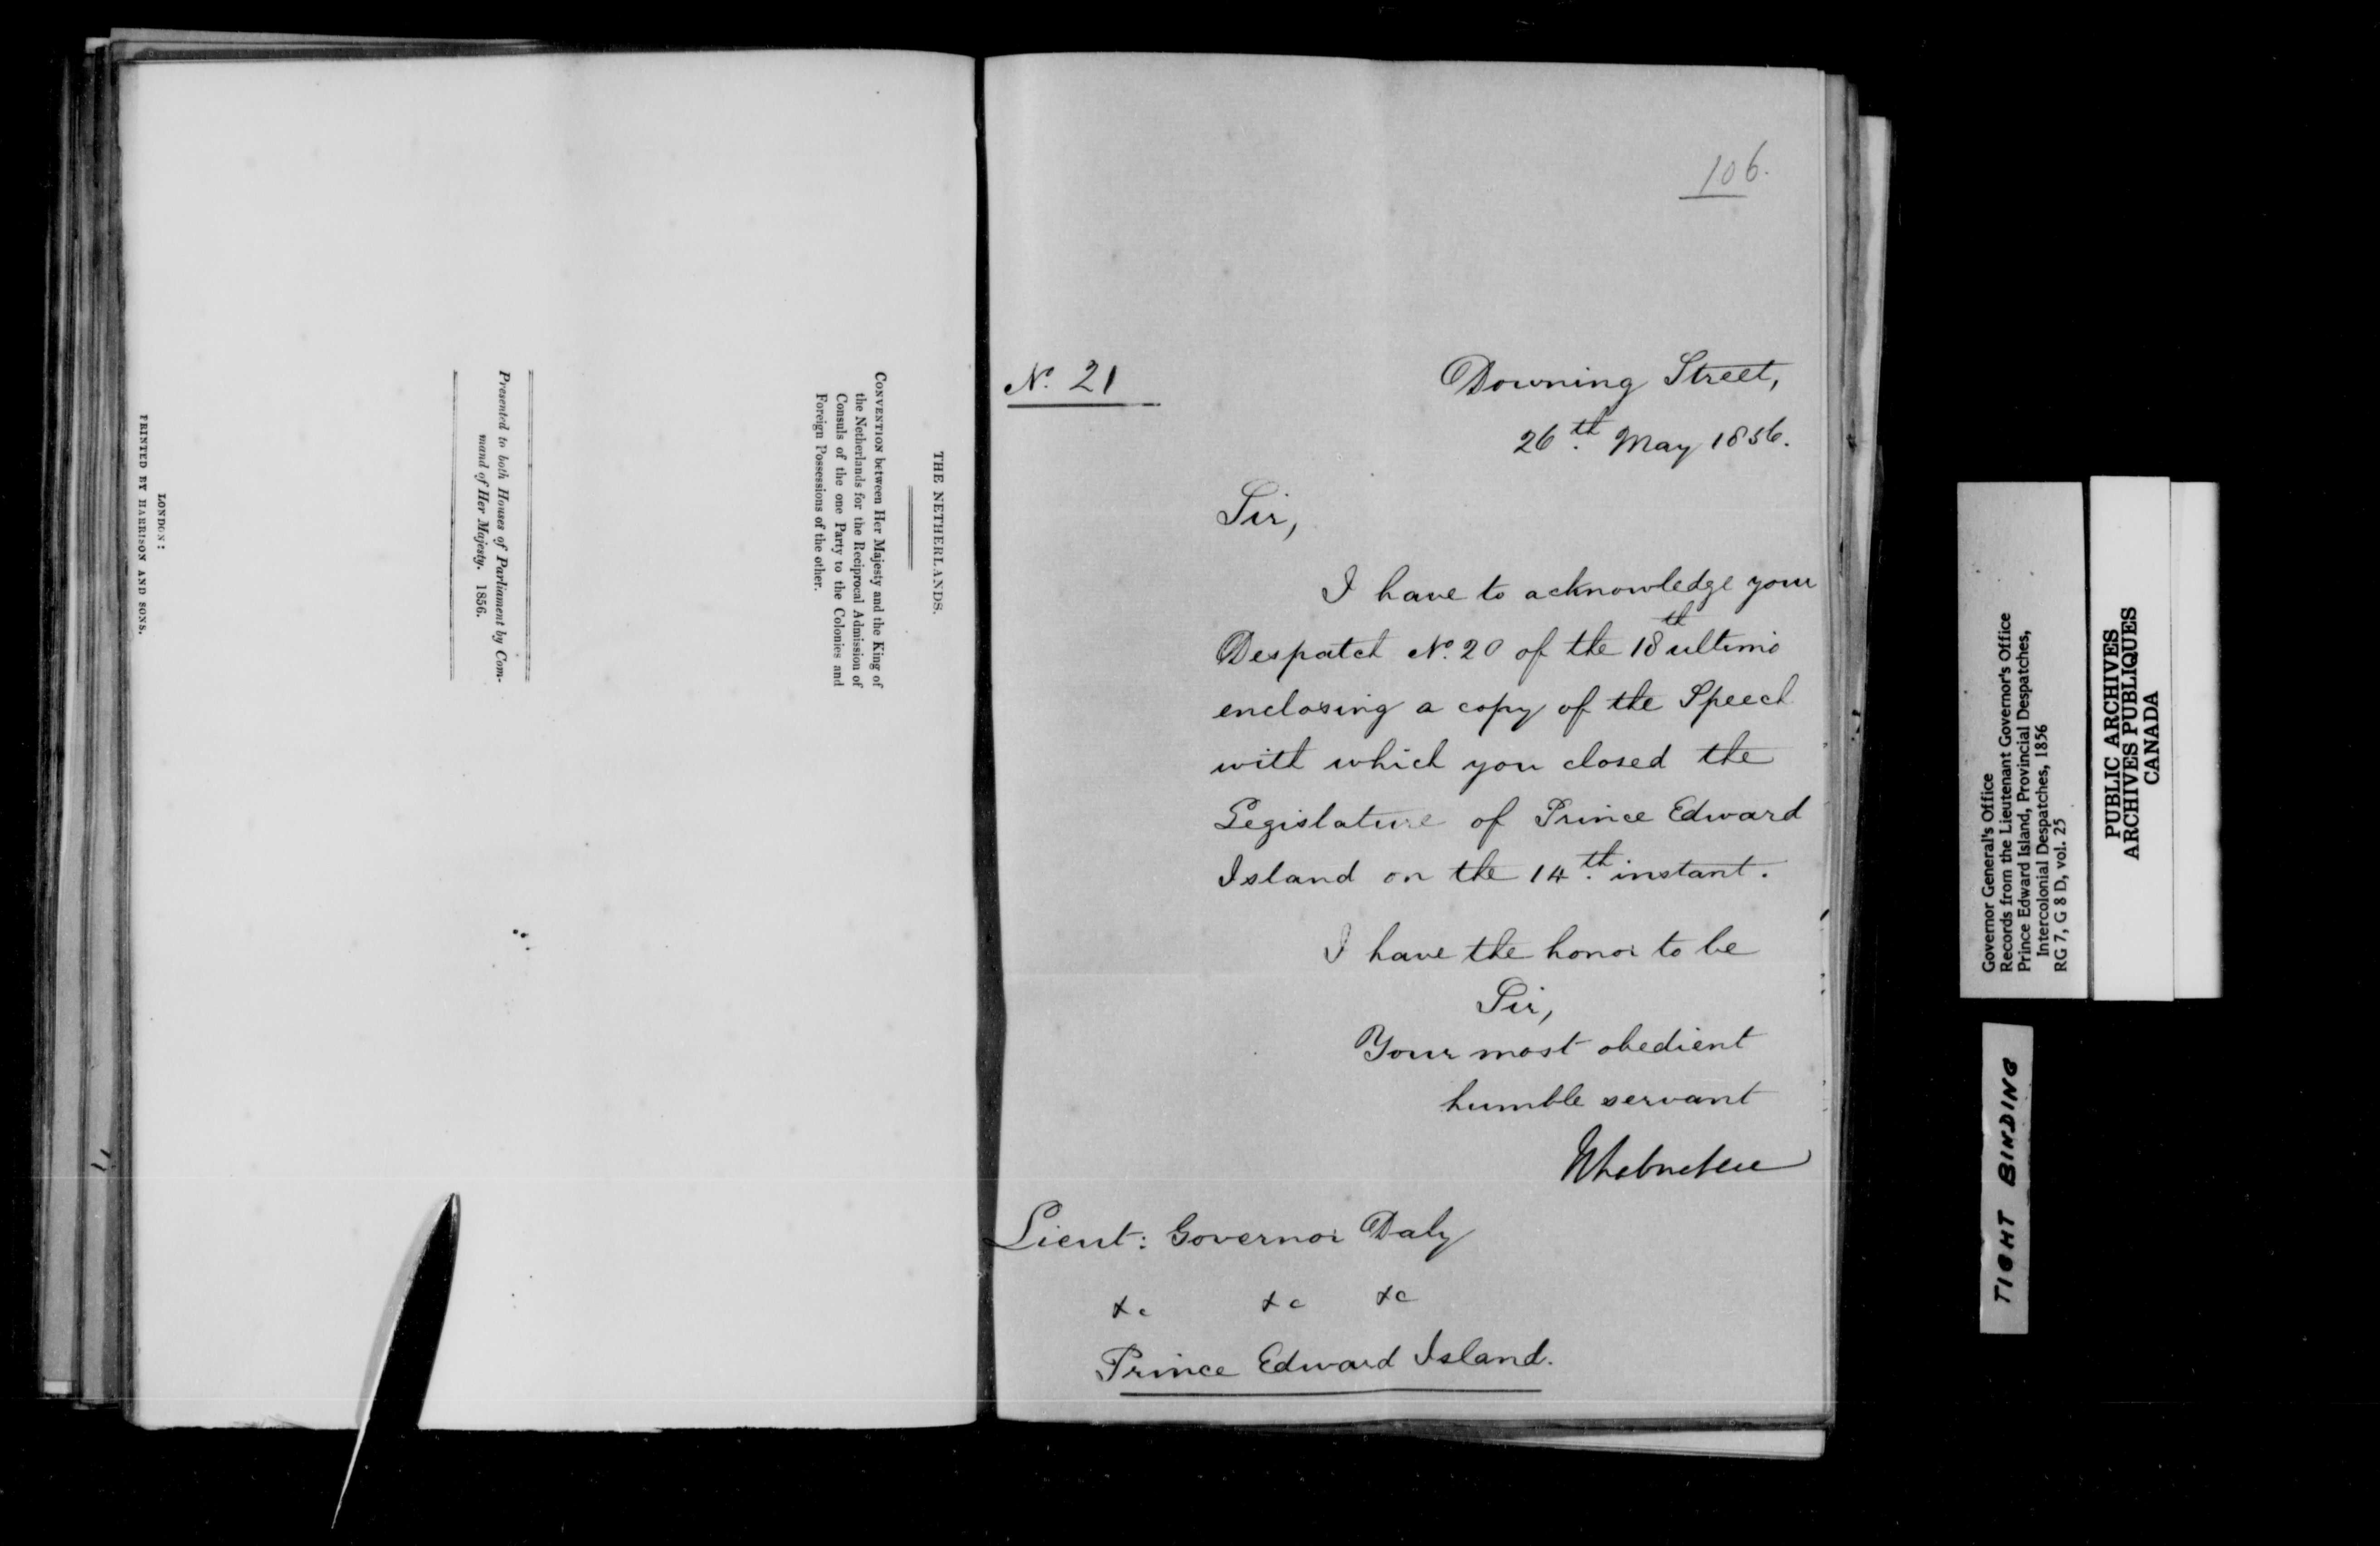 THE NETHERLANDS.
CONVENTION between Her Majesty and the King of
the Netherlands for the Reciprocal Admission of
Consuls of the one Party to the Colonies and
Foreign Possessions of the other.
Presented to both Houses of Parliament by Com-
mand of Her Majesty. 1856.
LONDON:
PRINTED BY HARRISON AND SONS.
106.
No. 21
Downing Street,
26th. May 1856.
Sir,
I have to acknowledge your
Despatch No. 20 of the 18th ultimo
enclosing a copy of the Speech
with which you closed the
Legislature of Prince Edward
Island on the 14th. instant.
I have the honor to be
Sir,
Your most obedient
humble servant
Lieut: Governor Daly
&c &c &c
Prince Edward Island.
Governor General's Office
Records from the Lieutenant Governor's Office
Prince Edward Island, Provincial Despatches,
Intercolonial Despatches, 1856
RG 7, G 8 D, vol. 25
PUBLIC ARCHIVES
ARCHIVES PUBLIQUES
CANADA
TIGHT BINDING